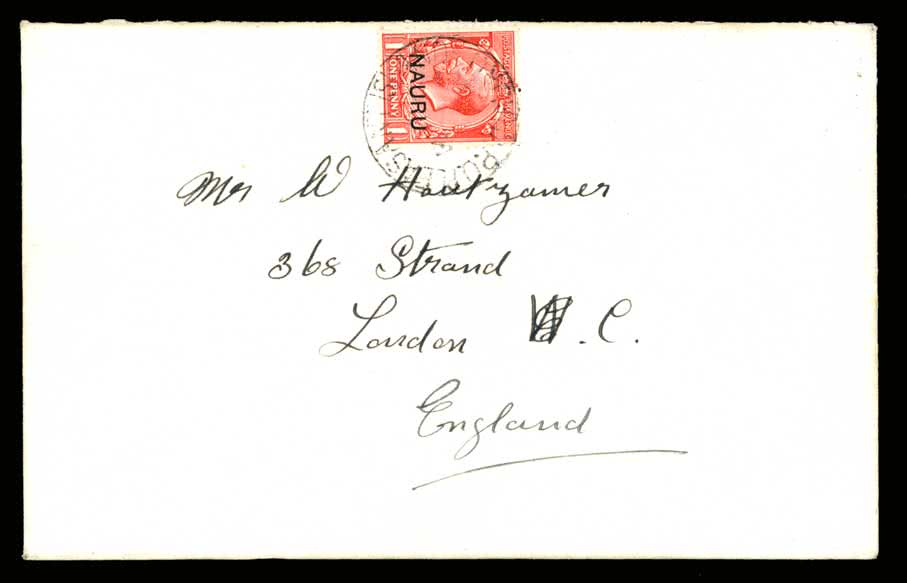 NAURU
ONE PENNY
1 1
Mr W Houtzamer
368 Strand
London W.C.
England